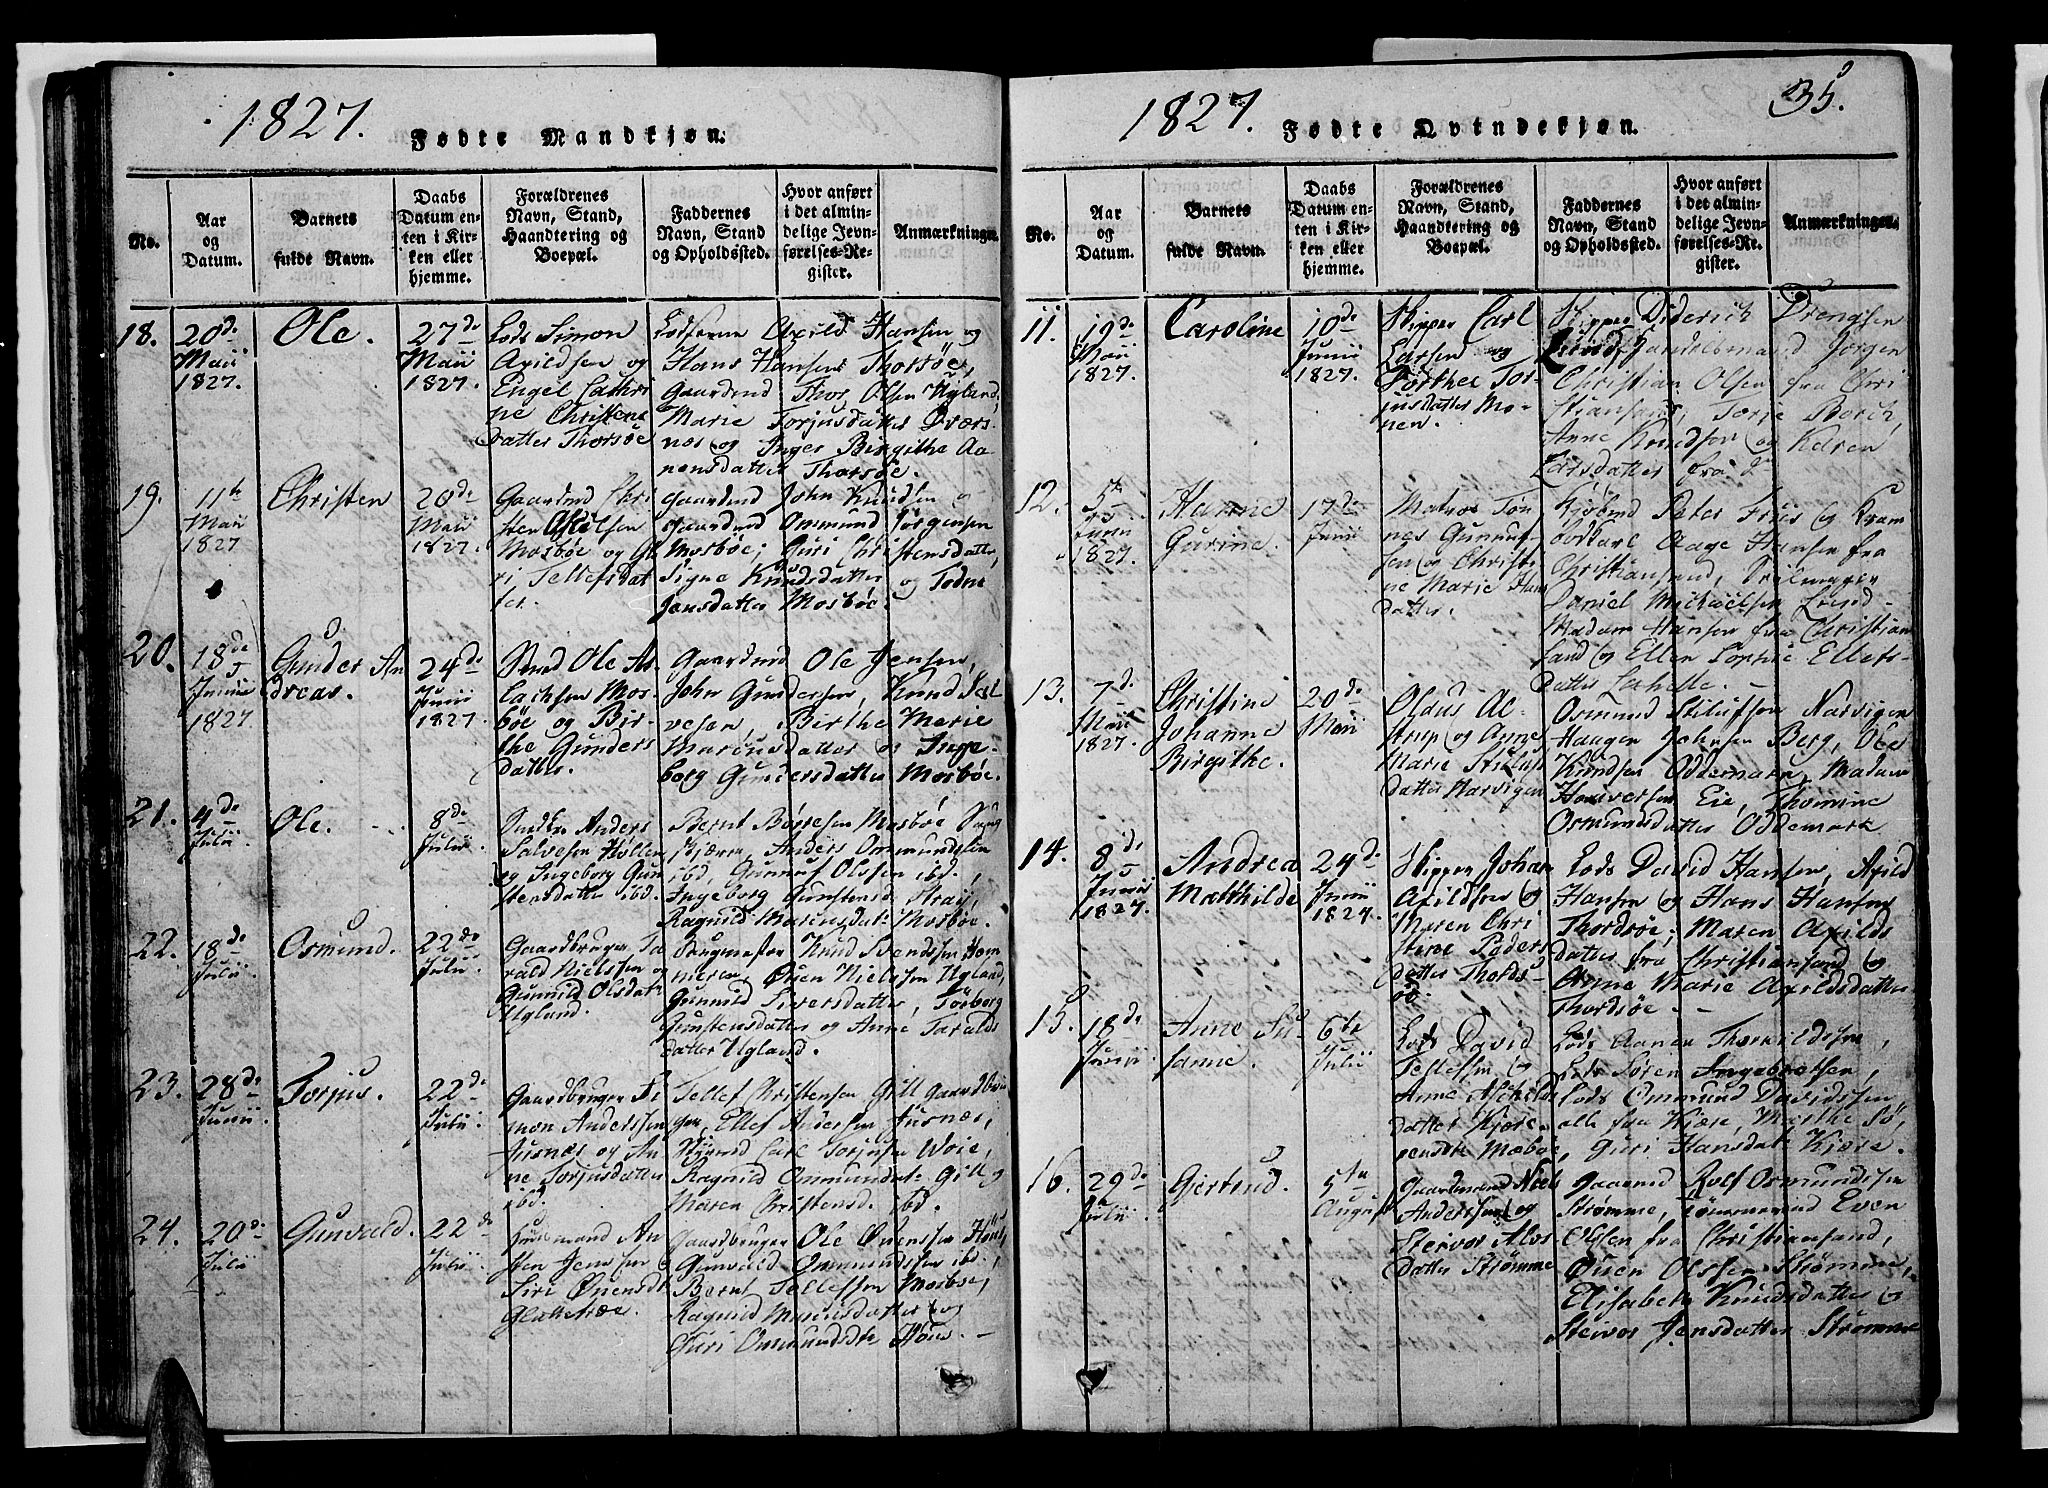 1827.
Fødte Mandkjøn.
No.
Aar
og
Datum.
Barnets
fulde Navn.
Daabs
Datum en-
ten i Kir-
ken eller
hjemme.
Forældrenes
Navn, Stand,
Haandtering og
Boepæl.
Faddernes
Navn, Stand
og Opholdssted.
Hvor anført
i det almin-
delige Jevn-
førelses-Re-
gister.
Anmærkninger.
18.
20de
Maii
1827.
Ole.
27de
Maii
1827.
Lods Simon
Axildsen og
Engel Cathri
ne Christens
datter Thorsøe
Lodserne Axild Hansen og
Hans Hansen Thorsøe,
Gaardmd Thor Olsen Ugland,
Marie Torjusdatter Qværs-
næs og Inger Birgithe Aa-
nensdatter Thorsøe.
19.
11te
Maii
1827
Christen
20de
Maii
1827.
Gaardmd Chri
sten
Mosbøe og Gu
ri Tellefsdat
ter.
Gaardmd John Knudsen og
Gaardmd Ommund Jørgensen
Mosbøe; Guri Christensdatter,
Signe Knudsdatter og Todne
Jonsdatter Mosbøe.
20.
18de
Junii
1827
Gunder An
dreas.
24de
Junii
1827.
Ole As-
lachsen Mos-
bøe og Bir-
the Gunders
datter.
Gaardmd Ole Jensen,
John Gundersen, Knud Sal
vesen, Berthe Marie
Mariusdatter og Inge-
borg Gundersdatter Mosbøe.
21.
4de
Julii
Ole.
8de
Julii
Anders
Salvesen Høllen
og Ingeborg Gun
stensdatter ibd.
Bernt Børresen Mosbøe
Kjæren, Anders Ommundsen
ibd, Gunnuf Olsen ibd.,
Ingeborg Gunstensd. Straij,
Ragnild Mariusdat: Mosbøe.
22.
18de
Julii
Osmund.
22de
Julii
Gaardbruger Ta
rald Nielsen og
Gunnild Olsdat
Ugland.
Knud Svendsen Hom
meren, Øuen Nielsen Ugland,
Gunnild Siversdatter, Tørborg
Gunstensdatter og Anne Taralds
datter Ugland.
23.
28de
Junii
Torjus.
22de
Julii
Gaardbruger Si
mon Andersen
Ausnæs og An
ne Torjusdatter
ibd.
Tellef Christensen Gill Gaardbru
ger, Ellef Andersen Ausnæs,
Carl Torjusen Woie,
Ragnild Ommundat: Gill og
Maren Christensd. ibd.
24.
20de
Julii
Gunvald.
22de
Julii
Huusmand An
sten Jensen og
Siri Øuensdt
Glattetræe.
Gaardbruger Ole Øuensen
Gunvald Ommundsen ibd.,
Bernt Tellefsen Mosbøe,
Ragnild Mariusdatter og
Guri Ommundsdtr
1827.
Fødte Qvindekjøn.
35.
No.
Aar
og
Datum.
Barnets
fulde Navn.
Daabs
Datum en-
ten i Kir-
ken eller
hjemme.
Forældrenes
Navn, Stand,
Haandtering og
Boepæl.
Faddernes
Navn, Stand
og Opholdssted.
Hvor anført
i det almin-
delige Jevn-
førelses-Re-
gister.
Anmærkninger.
11.
19de
Maii
1827.
Caroline
10de
Junii
1827.
Skipper Carl
Larsen og
Dorthee Tor-
jusdatter Mo-
nen.
Skipper Diderich Drengsen
Lund, Handelsmand Jørgen
Christian Olsen fra Chri
stiansand, Tørje Borch
Anne Knudsen og Karen
Larsdatter fra do
12.
5te
Junii
1827.
Hanne
Gurine.
17de
Junii
Matros Tøn
nes Gunnuf-
sen og Christi
ne Marie Hans
datter.
Kjøbmd Peter Friis og Kram
bodkarl Aage Hansen fra
Christiansand, Seilmager
Daniel Michaelsen Lund
Madam Hansen fra Christian
sand og Ellen Sophie Ellefs-
datter Lahelle.
13.
7de
Maii
1827.
Christine
Johanne
Birgithe.
20de
Maii
Oldus As-
trup og Anne
Marie
datter Narvigen
Osmund Narvigen
Haagen Johnsen Berg, Ole
Knudsen Oddemarn, Madam
Eie, Thomine
Osmundsdatter Oddemark
14.
8de
Junii
1827.
Andrea
Matthilde
24de
Junii
1827.
Skipper Johan
Axildsen og
Maren Chri
stine Peders
datter Thords-
øe.
Lods David Hansen, Axild
Hansen og Hans Hansen
Thordsøe; Maren Axilds
datter fra Christiansand og
Anne Marie Axildsdatter
Thordsøe.
15.
18de
Junii
Anne Su-
sanne.
6te
Julii
Lods David
Tellefsen og
Anne Aschilds
datter Kjøre.
Lods Aanen Thorkildsen,
Lods Søren Ingebretsen,
Lods Ommund Davidsen
alle fra Kjøre, Marthe
Guri Hansdat: Kjøre.
16.
29de
Julii
Gjertrud.
5te
August
Gaardmand Niels
Andersen og
Steivor Alvs-
datter Strømme
Gaarmd Rolf Osmundsen
Strømme, Tømmermd Even
Olsen fra Christiansand,
Øuen Olsen Strømme,
Elisabeth Knudsdatter og
Steivor Jensdatter Strømme